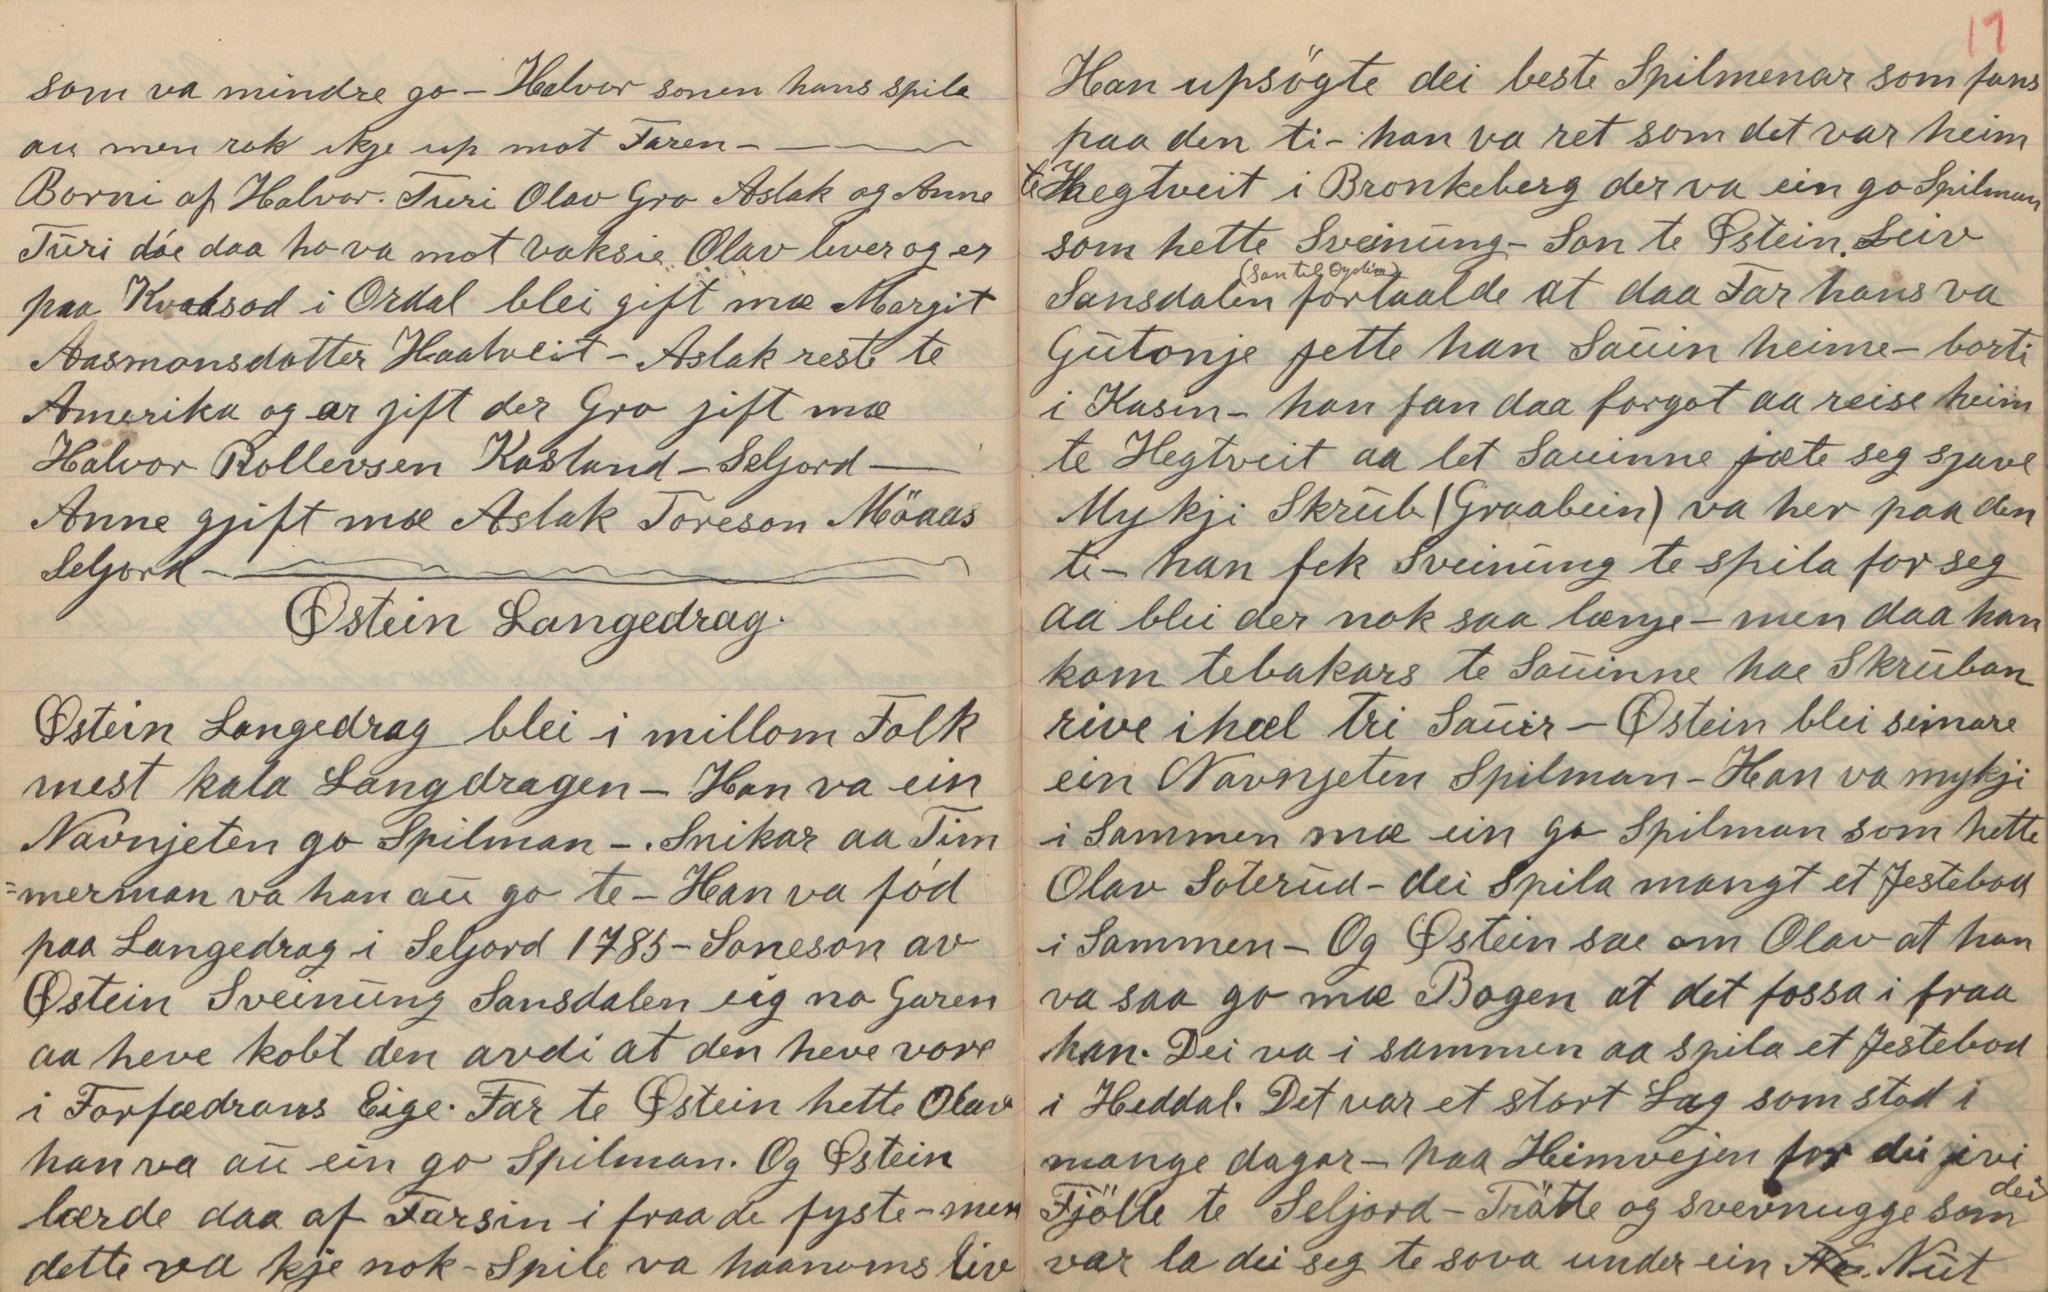 som va mindre go – Halvor sonen hans spila
au men rak ikje up mot Faren –
Borni af Halvor. Turi Olav Gro Aslak og Anne
Turi döe daa ho va mot vaksie Olav lever og er
paa Kvaasod i Ordal blei gift mæ Margit
Aasmonsdatter Haatveit – Aslak reste te
Amerika og er jift der Gro jift mæ
Halvor Rollevsen Kasland – Seljord –
Anne gjift mæ Aslak Toreson Möaas
Seljord –
Østein Langedrag.
Østein Langedrag blei i millom Folk
mest kala Langdragen – Han va ein
Navnjeten go Spilman –. Snikar aa Tim
=merman va han aū go te – Han va fód
paa Langedrag i Seljord 1785 – Soneson av
Østein Sveinūng Sansdalen eig no Garen
aa heve kobt den avdi at den heve vore
i Forfædrans Eige. Far te Østein hette Olav
han va aū ein go Spilman. Og Østein
lærde daa af Farsin i fraa de fyste – men
dette va kje nok – Spile va haanoms liv
17
Han upsögte dei beste Spilmenar som fans
paa den ti – han va ret som det var heim
te Hegtveit i Bronkeberg der va ein go Spilman
som hette Sveinūng – Son te Østein. Leiv
(Son til Oystein)
Sansdalen fortaalde at daa Far hans va
Gūtonje jette han Saūin heime – borti
i Kasin – han fan daa forgot aa reise heim
te Hegtveit aa let Sauinne jæte seg sjave
Mykji Skrūb (Graabein) va her paa den
ti – han fek Sveinūng te spila for seg
aa blei der nok saa længe – men daa han
kom tebakars te Saūinne hae Skrūban
rive ihæl tri Saūir – Østein blei seinare
ein Navnjeten Spilman – Han va mykji
i Sammen mæ ein go Spilman som hette
Olav Soterūd – dei Spila mangt et Jestebod
i Sammen – Og Østein sae om Olav at han
va saa go mæ Bogen at det fossa i fraa
han. Dei va i sammen aa spila et Jestebod
i Heddal. Det var et stort Lag som stod i
mange dagar – paa Heimvejen for dei jivi
Fjölle te Seljord – Trötte og svevnugge som dei
var la dei seg te sova under ein Nūt